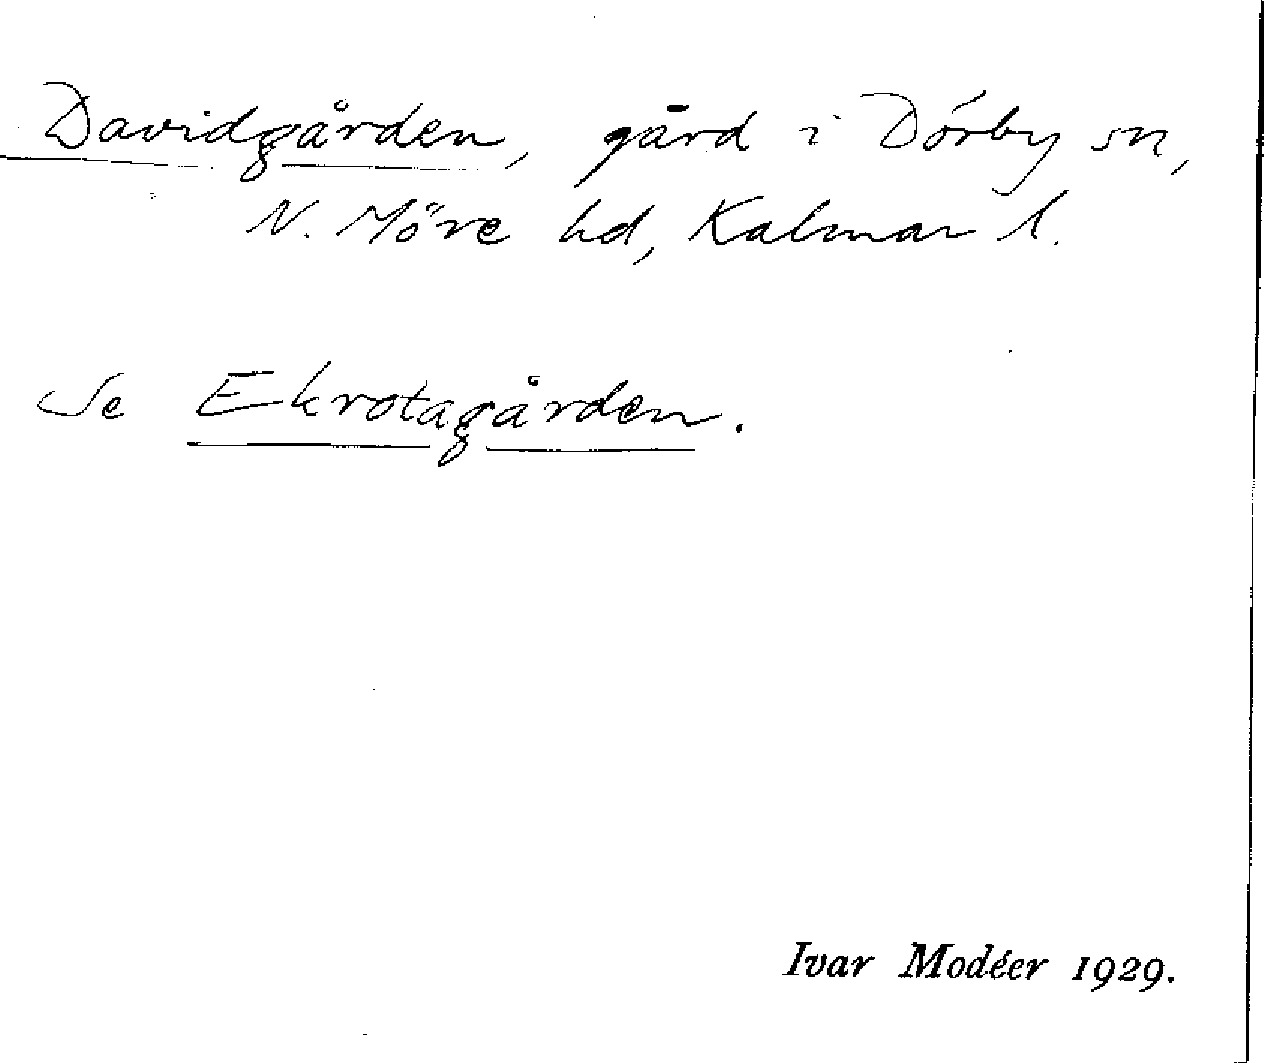 Davidgården, gård i Dörby sn,
N. Möre hd, Kalmar l.
Se Ekrotagården.
Ivar Modéer 1929.